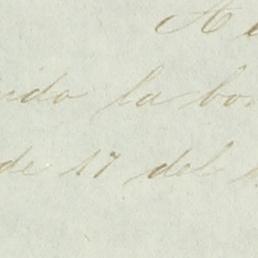 A
ido la bon
de 17 del